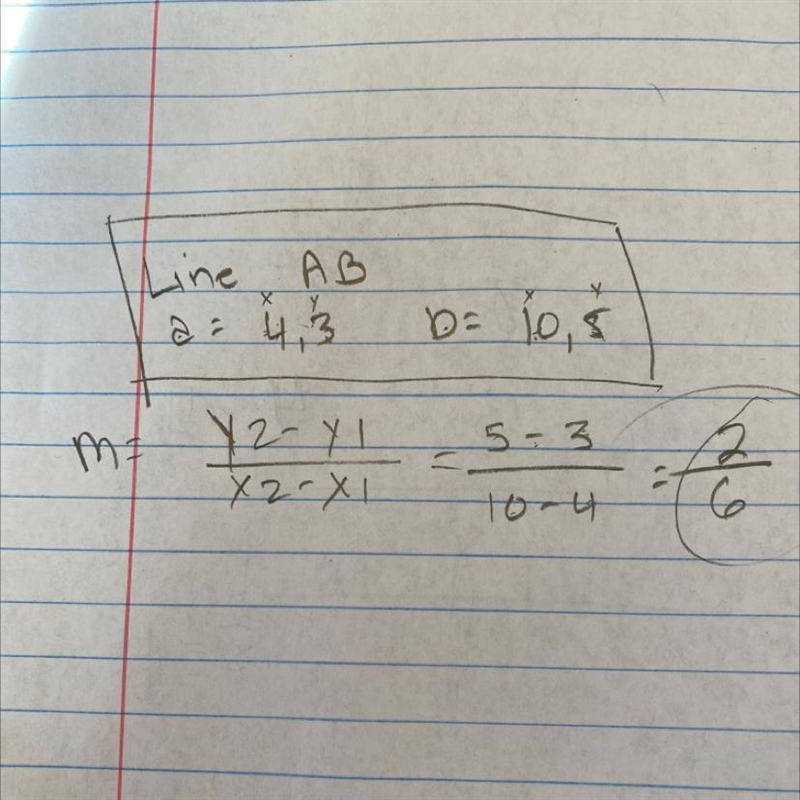 Line AB
x y x y
a = 4,3 b = 10,5
m = y2-y1 / x2-x1 = 5-3 / 10-4 = 2 / 6